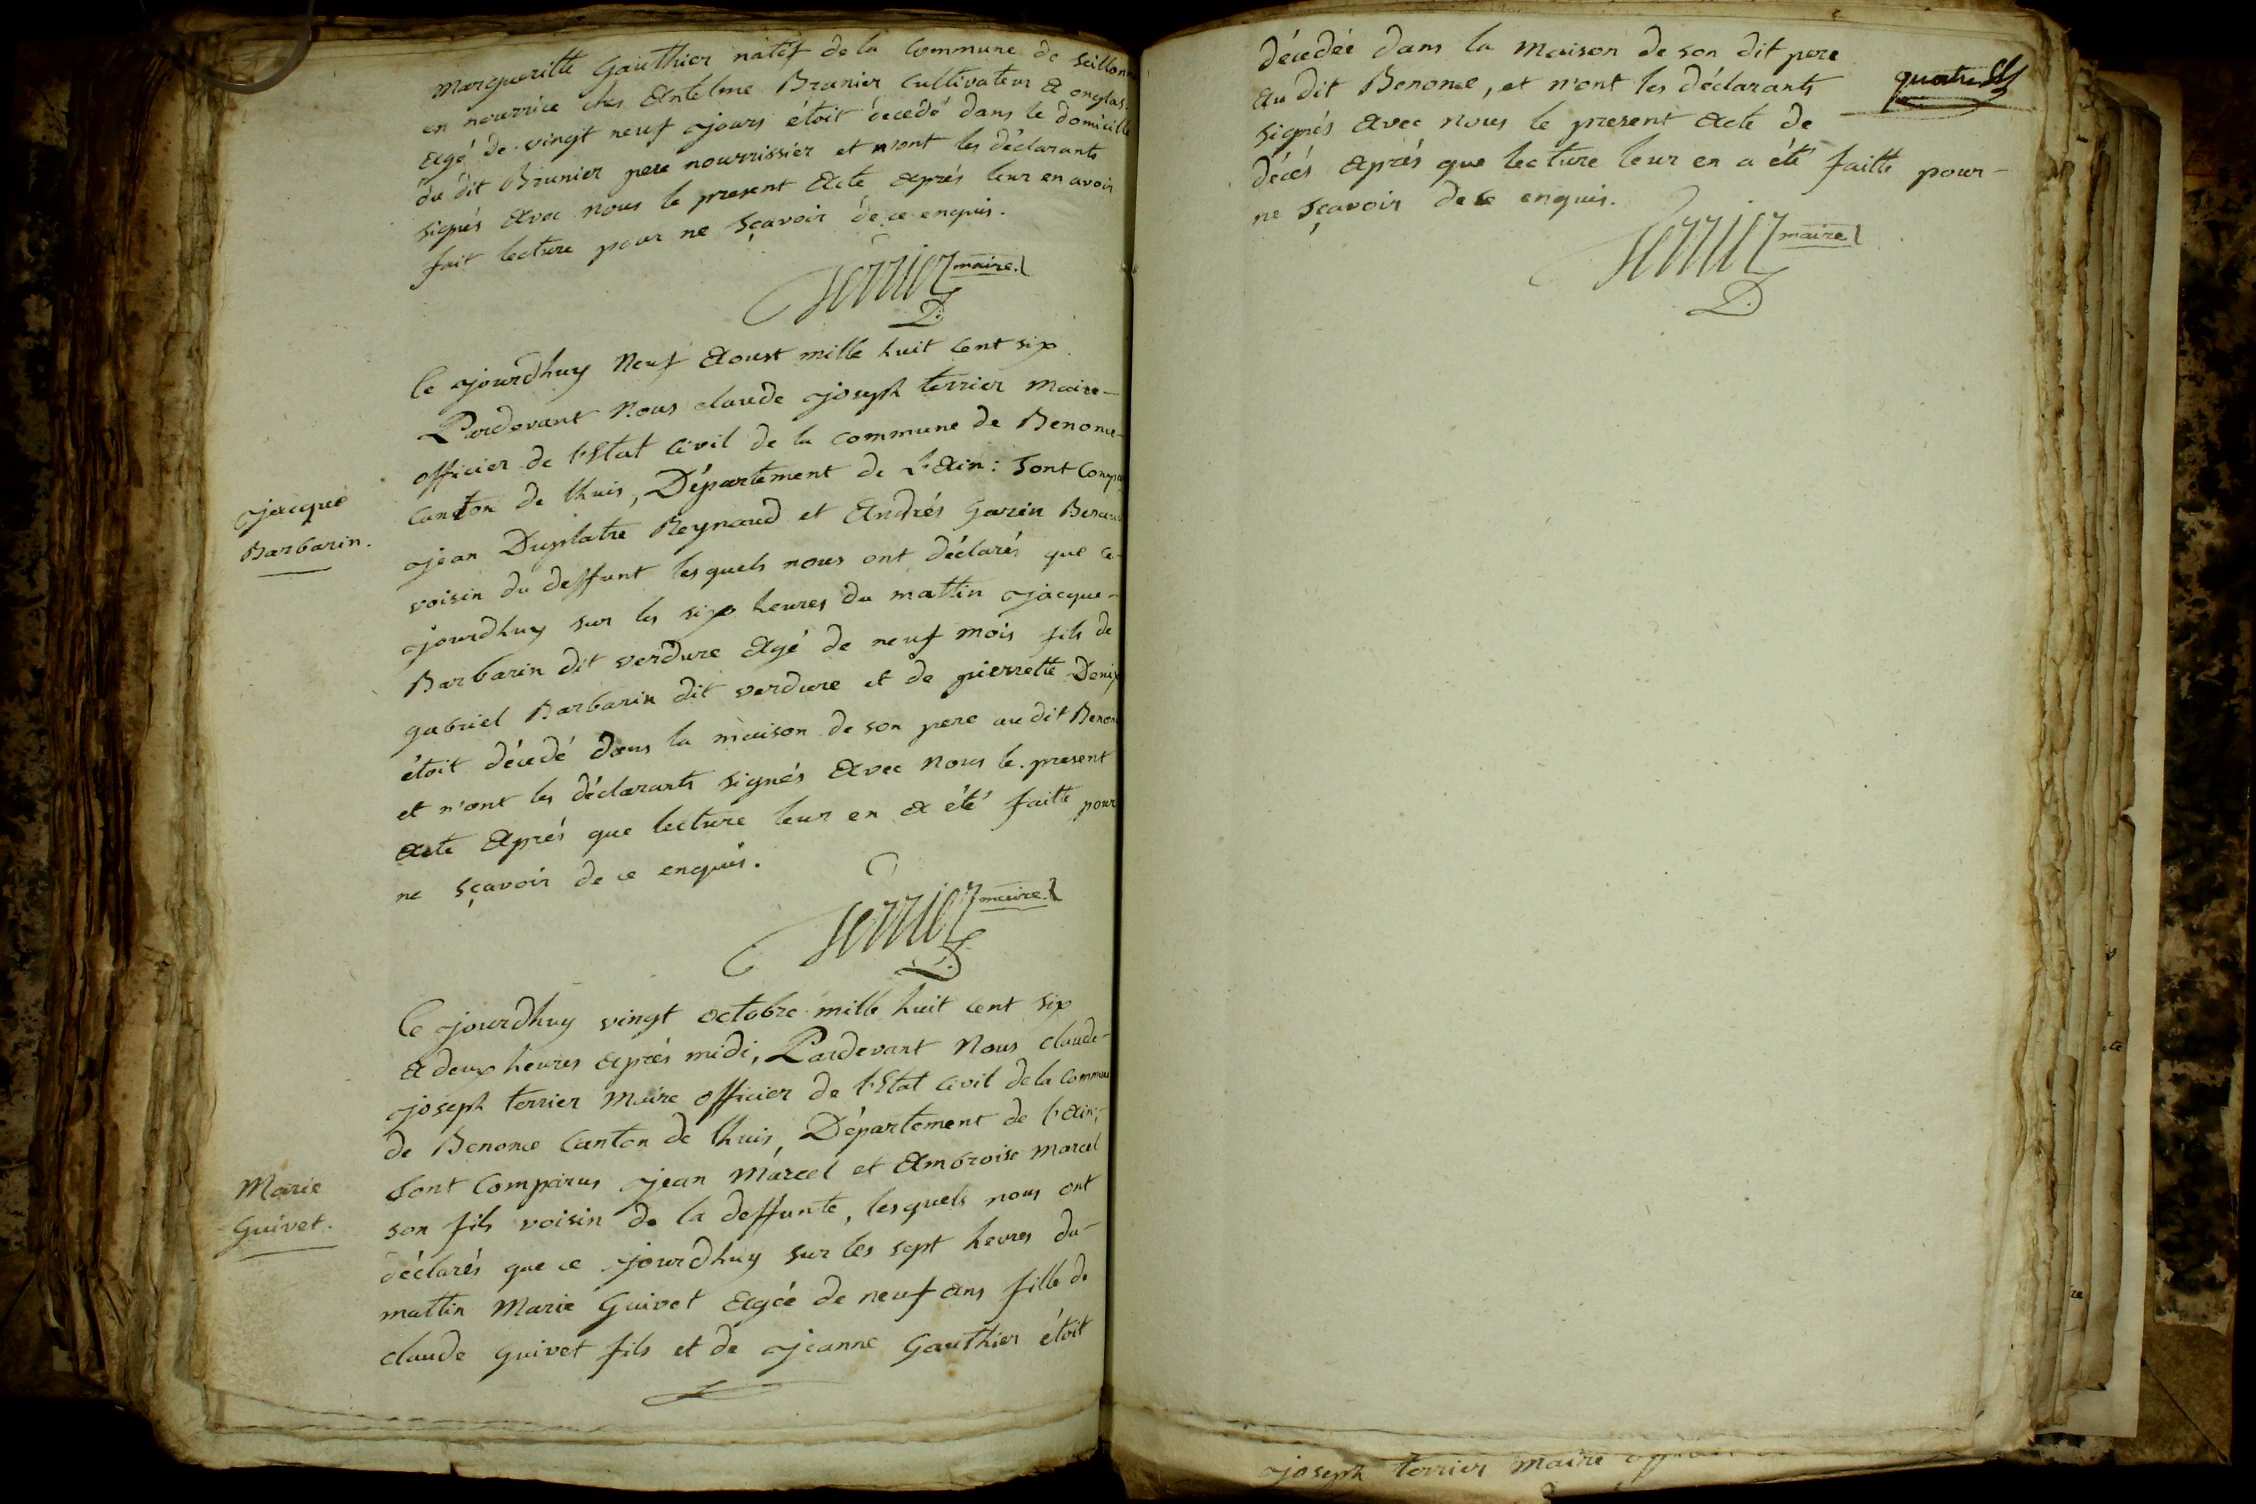 Margueritte Gauthier natif de la commune de Seillon
en nourrice chés Antelme Brunier Cultivateur a onglas.
agé de vingt neuf jours étoit décedé dans le domicille
du dit Brunier pere nourrissier et n'ont les déclarants
signés avec nous le present acte aprés leur en avoir
fait lecture pour ne sçavoir de ce enquis.
Terrier maire.
Ce jourdhuy Neuf Aoust mille huit cent six
Pardevant Nous claude joseph terrier Maire
officier de l'Etat Civil de la commune de Benonce
Canton de lhuis, Département de L'Ain : Sont Compa
jean Duplatre Reynaud et Andrés Garin
voisin du deffunt lesquels nous ont déclarés que ce
jourdhuy sur les six heures du mattin jacque
Barbarin dit verdure agé de neuf mois fils de
gabriel Barbarin dit verdure et de pierrette
étoit décedé dans la maison de son pere au dit Benon
et n'ont les déclarants signés avec nous le present
acte aprés que lecture leur en a été faitte pour
ne sçavoir de ce enquis.
jacque
Barbarin.
Terrier maire.
Ce jourdhuy vingt octobre mille huit cent six
a deux heures aprés midi, Pardevant Nous claude
joseph terrier Maire officier de l'Etat Civil de la commu
de Benonce Canton de lhuis, Département de l'Ain;
Sont Comparus jean Marcel et Ambroise Marcel
son fils voisin de la deffunte, lesquels nous ont
déclarés que ce jourdhuy sur les sept heures du
mattin Marie Guivet agée de neuf ans fille de
claude guivet fils et de jeanne Gauthier étoit
Marie
Guivet.
décedée dans la maison de son dit pere
au dit Benonce, et n'ont les déclarants
signés avec nous le present acte de
décés aprés que lecture leur en a été faitte pour
ne sçavoir de ce enquis.
quatre
Terrier maire
joseph terrier Maire